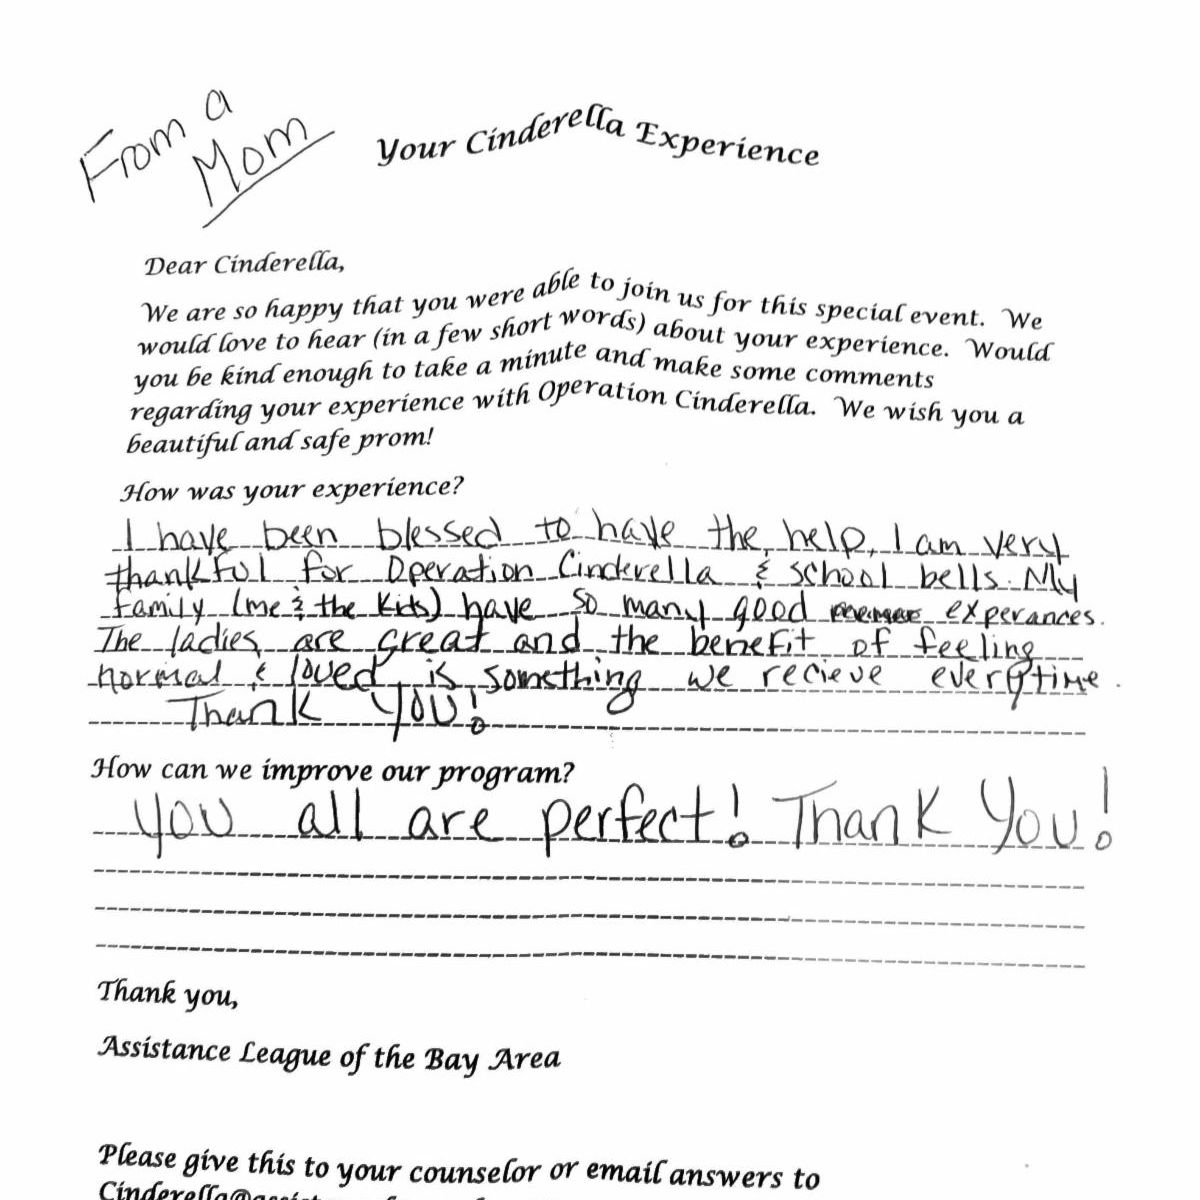 From a
Mom
Your Cinderella Experience
Dear Cinderella,
We are so happy that you were able to join us for this special event. We
would love to hear (in a few short words) about your experience. Would
you be kind enough to take a minute and make some comments
regarding your experience with Operation Cinderella. We wish you a
beautiful and safe prom!
How was your experience?
I have been blessed to have the help, I am very
thankful for Operation Cinderella & school bells. My
family (me & the kids) have so many good experances.
The ladies are great and the benefit of feeling
normal & loved is something we recieve everytime.
Thank you!
How can we improve our program?
You all are perfect! Thank You!
Thank you,
Assistance League of the Bay Area
Please give this to your counselor or email answers to